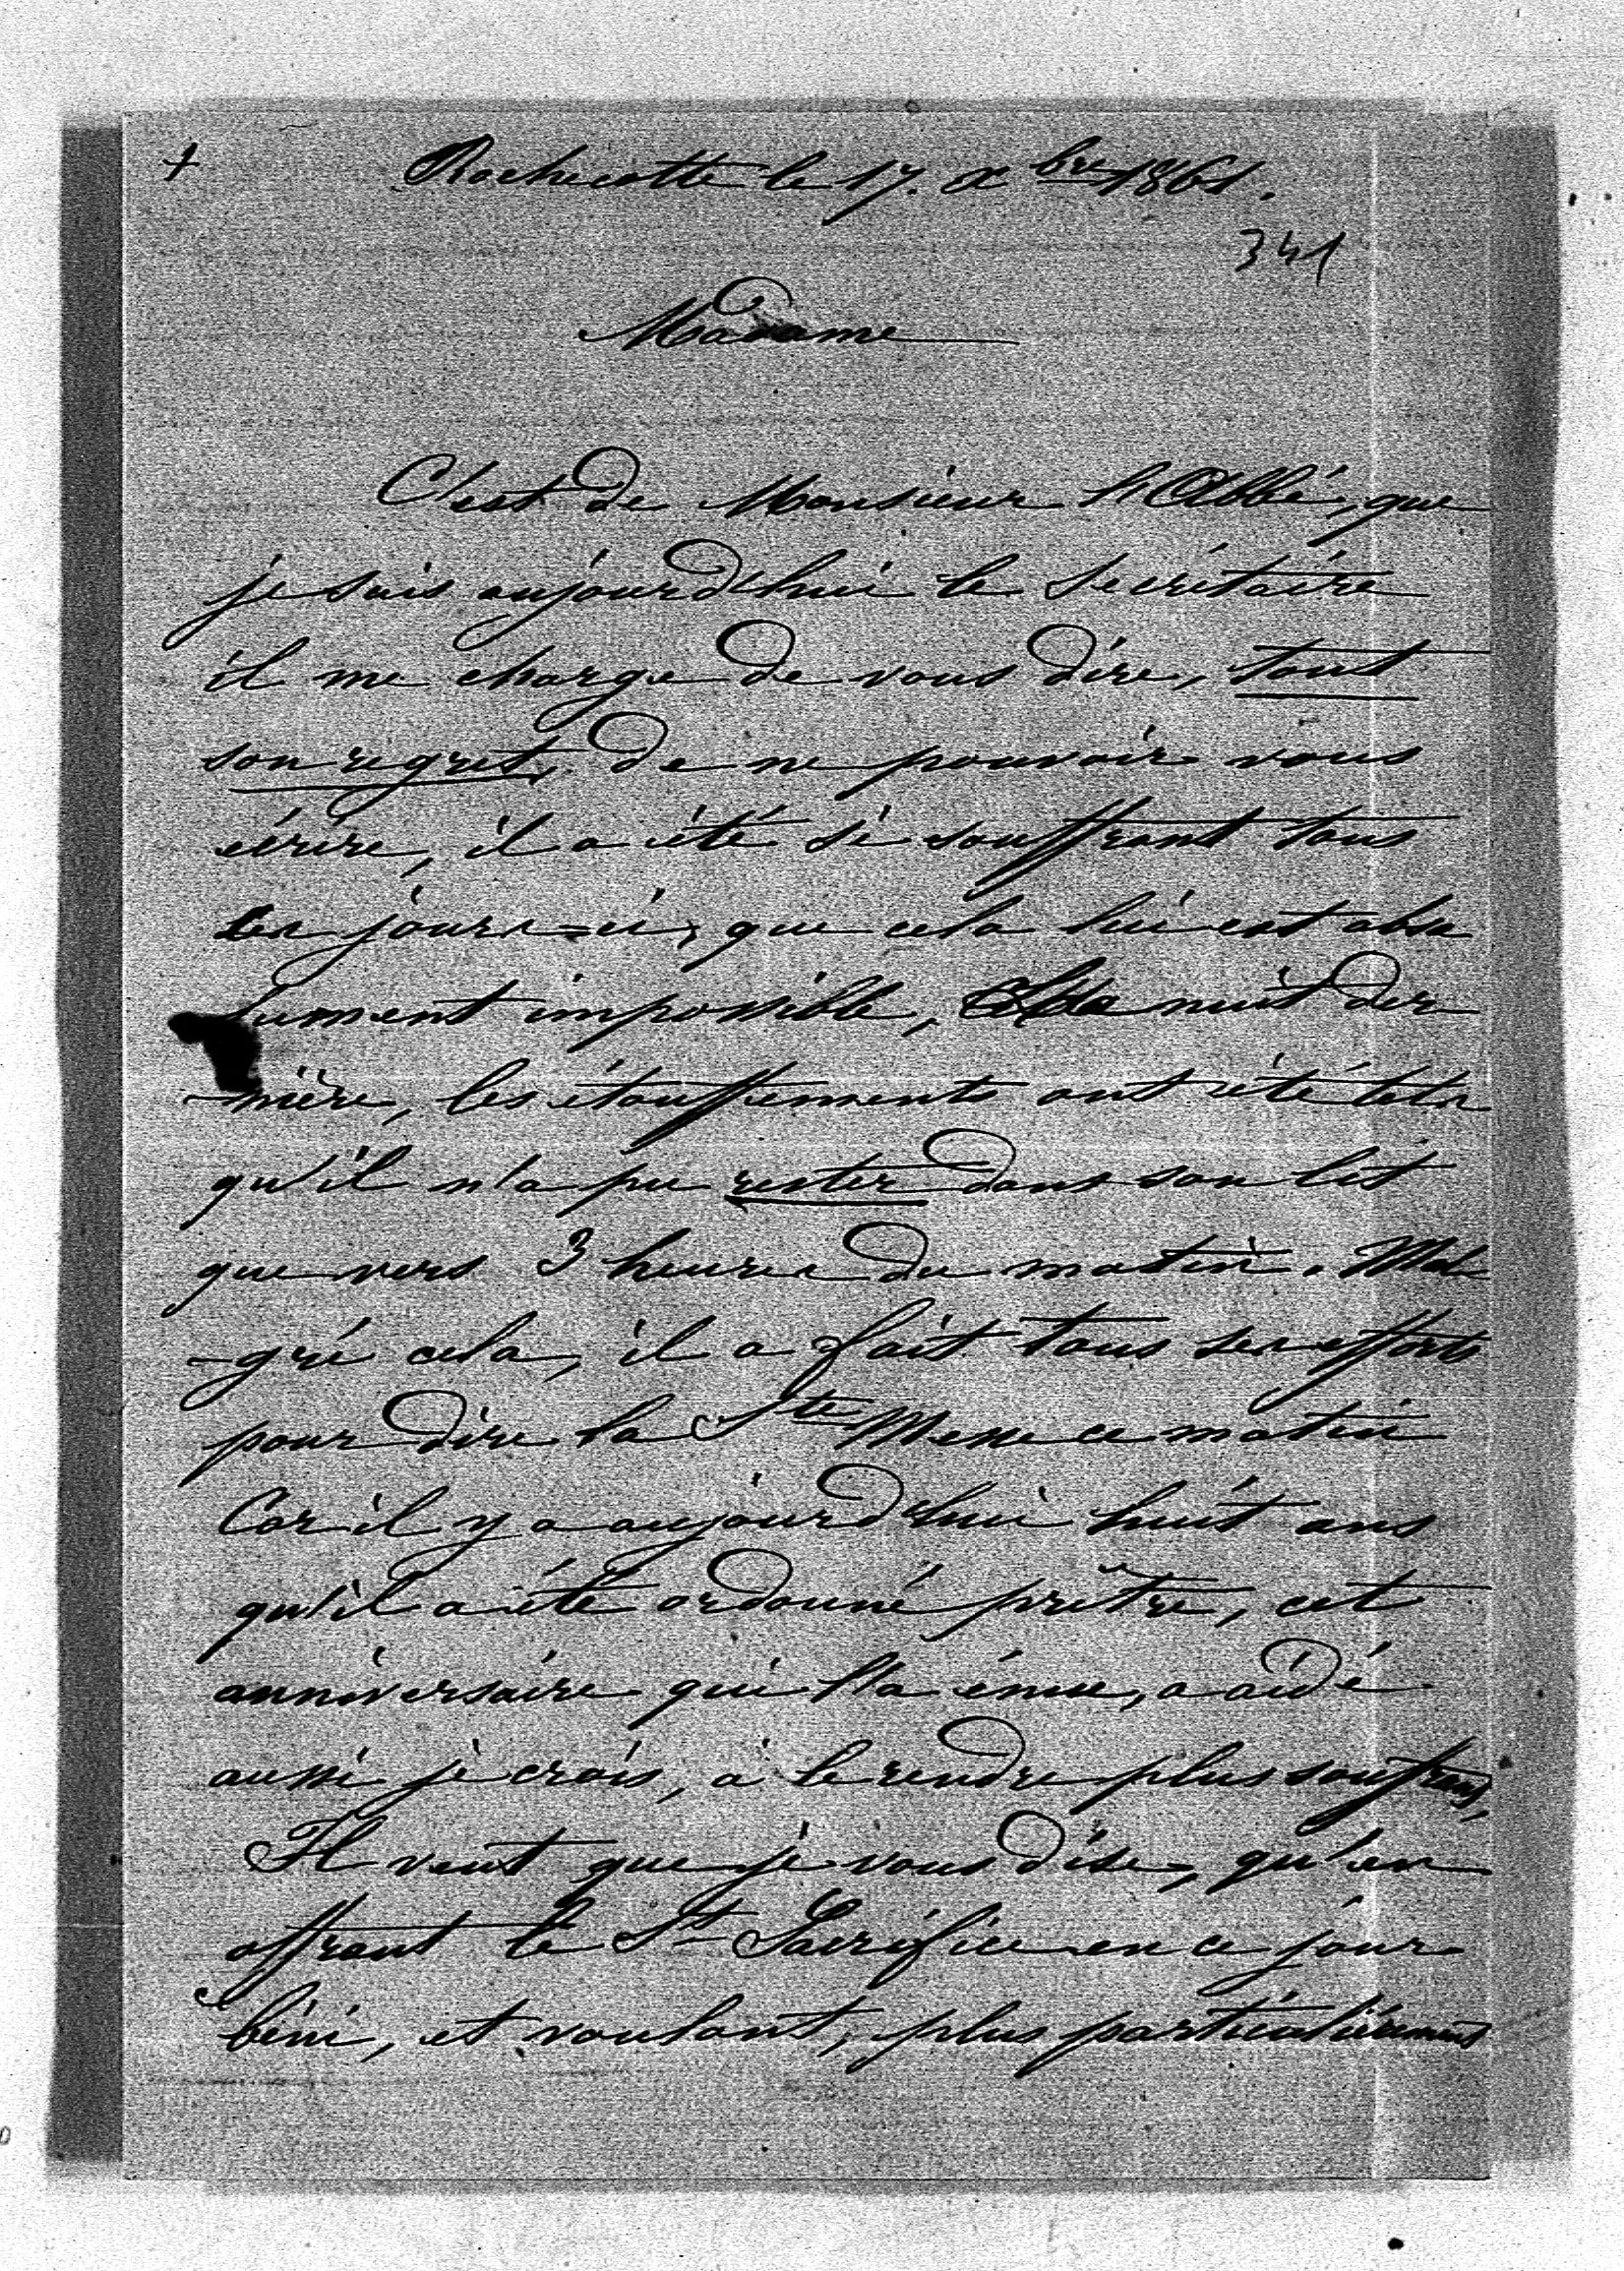 + Rochecotte le 17. Xbre 1861.
341
Madame
C'est de Monsieur l'Abbé, que
je suis aujourd'hui le secrétaire
il me charge de vous dire, tout
son regret, de ne pouvoir vous
écrire, il a été si souffrant tous
ces jours-ci, que cela lui est abso
lument impossible, la nuit der
-nière, les étouffements ont été tels
qu'il n'a pu rester dans son lit
que vers 3 heures du matin. Mal
-gré cela, il a fait tous ses efforts
pour dire la Ste Messe ce matin
Car il y a aujourd'hui huit ans
qu'il a été ordonné prêtre, cet
anniversaire qui l'a émue, a aidé
aussi je crois, à le rendre plus souffrant,
Il veut que je vous dise, qu'en
offrant le St Sacrifice en ce jour
béni, et voulant, plus particulièrement